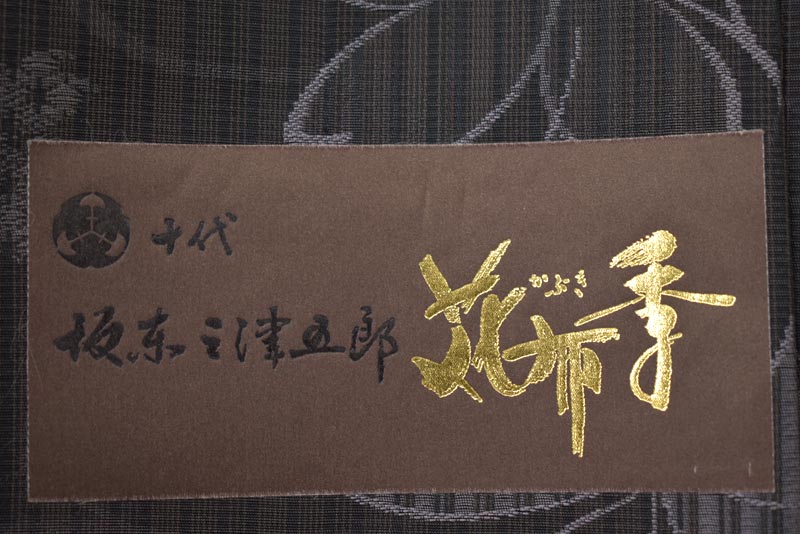 十代
坂東三津五郎
かぶき
花布季